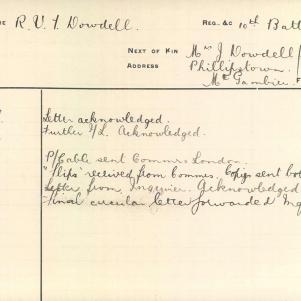 ME R. V. T. Dowdell. REG. &C 10th Batt
NEXT OF KIN Mrs J Dowdell
ADDRESS Phillipstown.
Mt Gambier F
Letter acknowledged.
Further f/L. Acknowledged.
P/Cable sent Commrs London.
"Slips" received from Commrs. Copys sent bot
Letter from Inquirer. Acknowledged
Final circular letter forwarded Inq